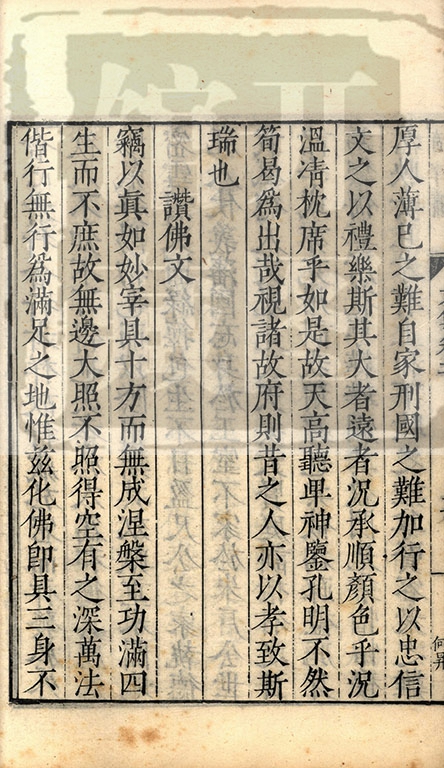 厚人薄已之難自家刑國之難加行之以忠信
文之以禮樂斯其大者遠者況承順顏色乎況
溫凊枕席乎如是故天高聽𤰞神鑒孔明不然
筍曷為出哉視諸故府則昔之人亦以孝致斯
瑞也
讚佛文
竊以眞如妙宰具十方而無成涅槃至功滿四
生而不庶故無邊大照不照得空有之深萬法
偕行無行為滿足之地惟茲化佛卽具三身不
何昇